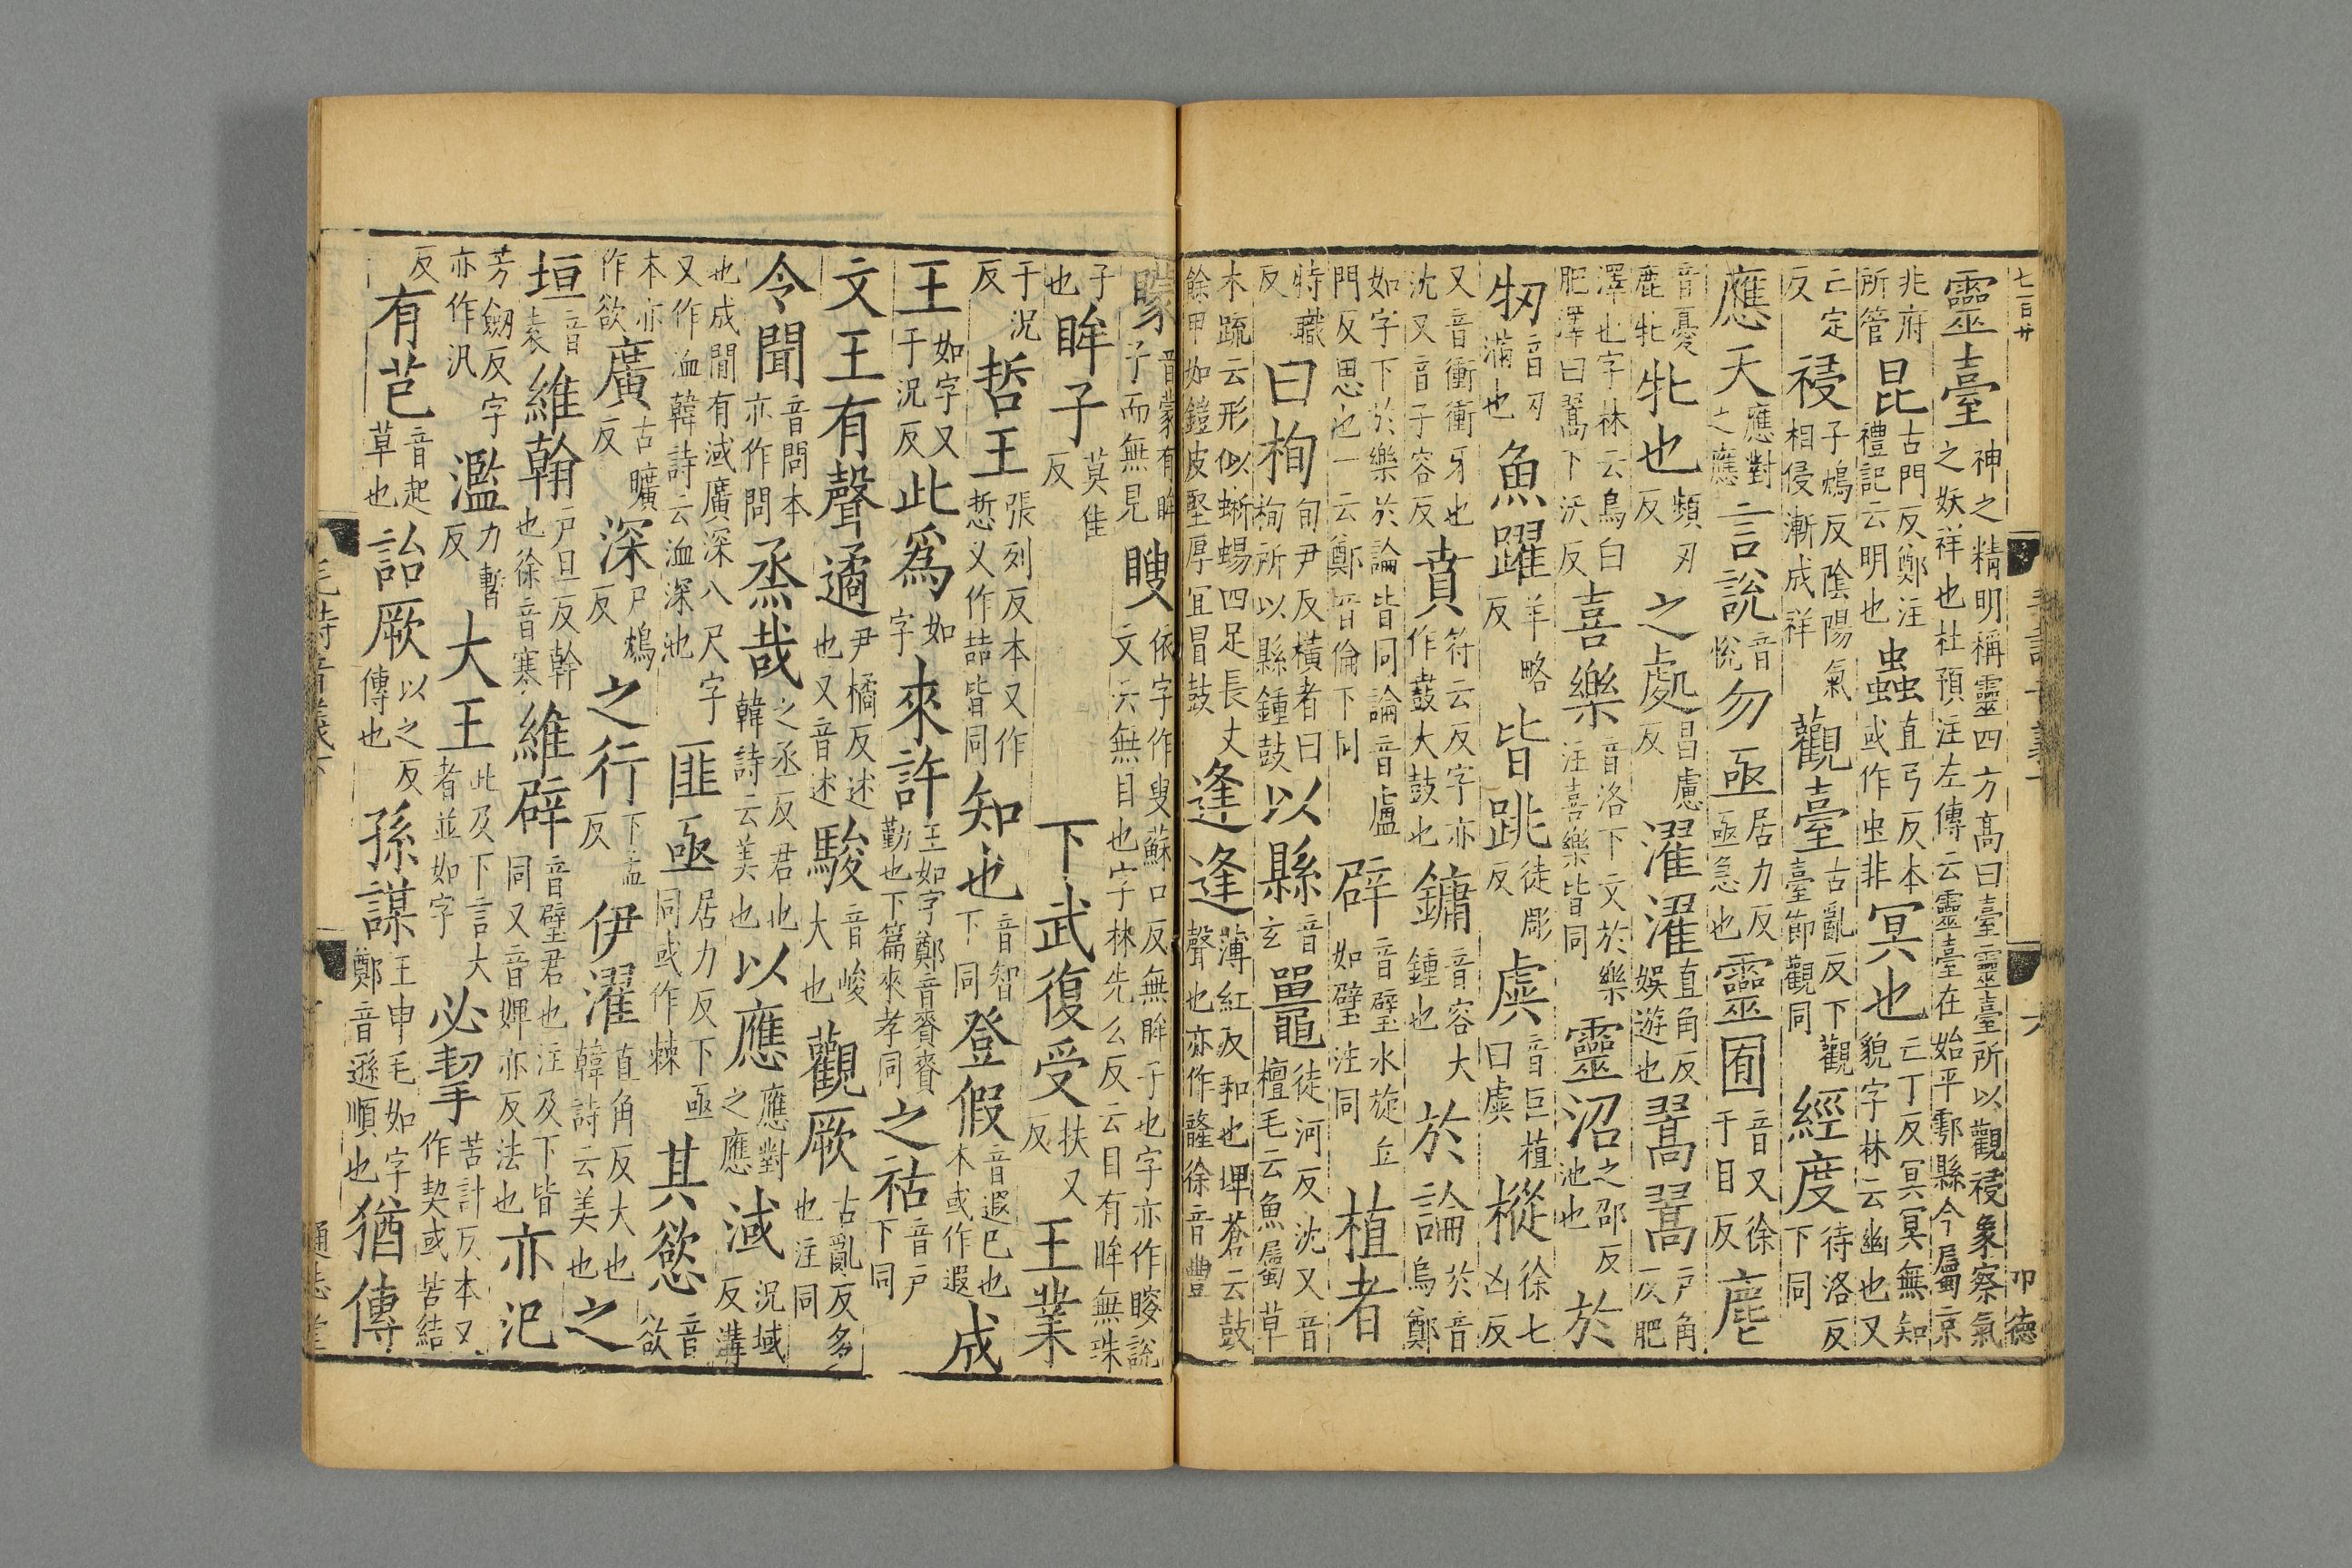 七百廿
毛詩音義下
六
卬德
靈臺神之精明稱靈四方高曰臺靈臺所以觀祲象察氣之妖祥也杜預注左傳云靈臺在始平鄠縣今屬京
兆府所管昆古門反鄭注禮記云明也蟲直弓反本或作虫非冥也亡丁反冥冥無知貌字林云幽也又
亡定反祲子鴆反陰陽氣相侵漸成祥觀臺古亂反下觀臺節觀同經度待洛反下同
應天應對之應言說音悅勿亟居力反亟急也靈囿音又徐于目反麀
音憂鹿牝牝也頻刃反之處昌慮反濯濯直角反娛遊也翯翯戶角反肥
澤也字林云鳥白肥澤曰翯下沃反喜樂音洛下文於樂注喜樂皆同靈沼之邵反池也於
牣音刃滿也魚躍羊略反皆跳徒彫反虡音巨植曰虡樅徐七凶反
又音衝衝牙也沈又音子容反賁符云反字亦作鼖大鼓也鏞音容大鍾也於論於音烏鄭
如字下於樂於論皆同論音盧門反思也一云鄭音倫下同辟音璧水旋丘如璧注同植者
特職反曰栒旬尹反橫者曰栒所以縣鍾鼓以縣音玄鼉徒河反沈又音檀毛云魚屬草
木疏云形似蜥蜴四足長丈餘甲如鎧皮堅厚宜冒鼓逢逢薄紅反和也埤蒼云鼓聲也亦作韸徐音豐
矇音蒙有眸子而無見瞍依字作叟蘇口反無眸子也字亦作䏂說文云無目也字林先么反云目有眸無珠
子也眸子莫隹反下武復受扶又反王業
于況反哲王張列反本又作悊又作喆皆同知也音智下同登假音遐已也本或作遐成
王如字又于況反此為如字來許王如字鄭音賚賚勤也下篇來孝同之祜音戶下同
文王有聲遹尹橘反述也又音述駿音峻大也觀厥古亂反多也注同
令聞音問本亦作問烝哉之丞反君也韓詩云美也以應應對之應淢況域反溝
也成間有淢廣深八尺字又作洫韓詩云洫深池匪亟居力反下亟同或作棘其慾音欲
本亦作欲廣古曠反深尸鴆反之行下孟反伊濯直角反大也韓詩云美也之
垣音袁維翰戶旦反幹也徐音寒維辟音璧君也注及下皆同又音婢亦反法也亦汜
芳劒反字亦作汎濫力暫反大王此及下言大者並如字必挈苦計反本又作契或苦結
反有芑音起草也詒厥以之反傳也孫謀王申毛如字鄭音遜順也猶傳
毛詩音義下
通志堂